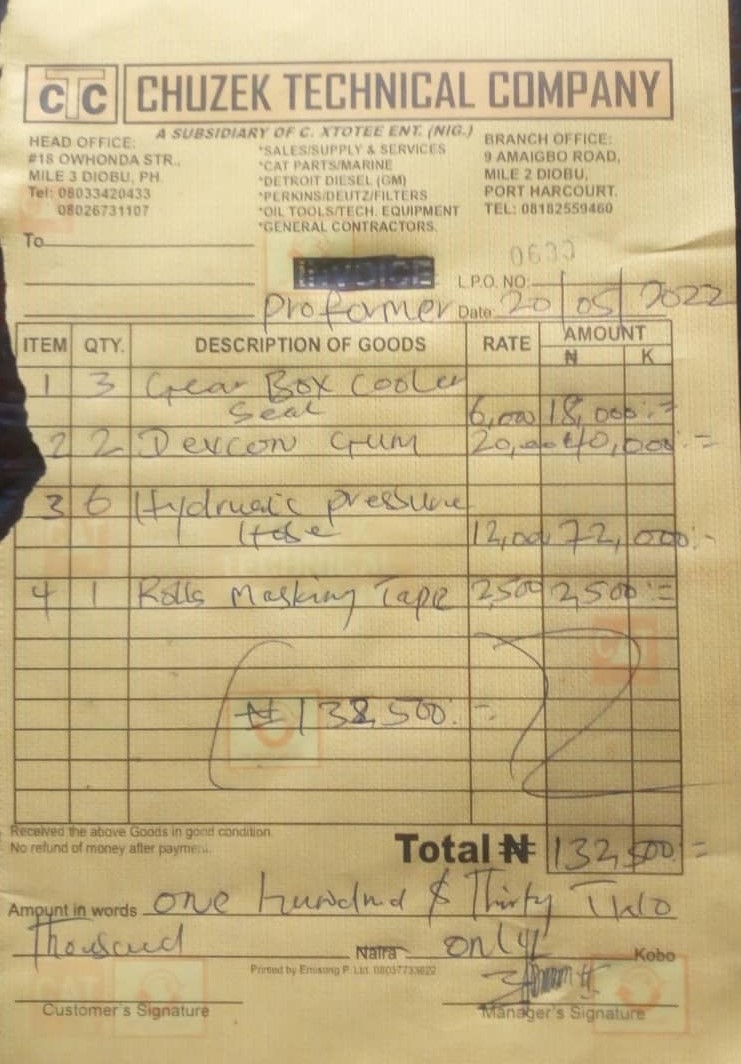 CTC CHUZEK TECHNICAL COMPANY
A SUBSIDIARY OF C. XTOTEE ENT. (NIG.)
HEAD OFFICE:
#18 OWHONDA STR.,
MILE 3 DIOBU, PH.
Tel: 08033420433
08026731107
*SALES/SUPPLY & SERVICES
*CAT PARTS/MARINE
*DETROIT DIESEL (GM)
*PERKINS/DEUTZ/FILTERS
*OIL TOOLS/TECH. EQUIPMENT
*GENERAL CONTRACTORS.
BRANCH OFFICE:
9 AMAIGBO ROAD,
MILE 2 DIOBU,
PORT HARCOURT.
TEL: 08182559460
To
INVOICE
L.P.O. NO:
Proformer Date: 20/05/2022
ITEM QTY. DESCRIPTION OF GOODS RATE AMOUNT
₦ K
1 3 Gear Box Cooler
Seal 6,000 18,000:=
2 2 Devcon Gum 20,000 40,000:=
3 6 Hydrualic pressure
Hose 12,000 72,000:-
4 1 Rolls Masking Tape 2,500 2,500:=
₦132,500:=
Received the above Goods in good condition
No refund of money after payment.
Total ₦ 132,500:=
Amount in words one hundred & Thirty Two
Thousand Naira only Kobo
Printed by Emisong P. Ltd. 08037733822
Customer's Signature
Manager's Signature